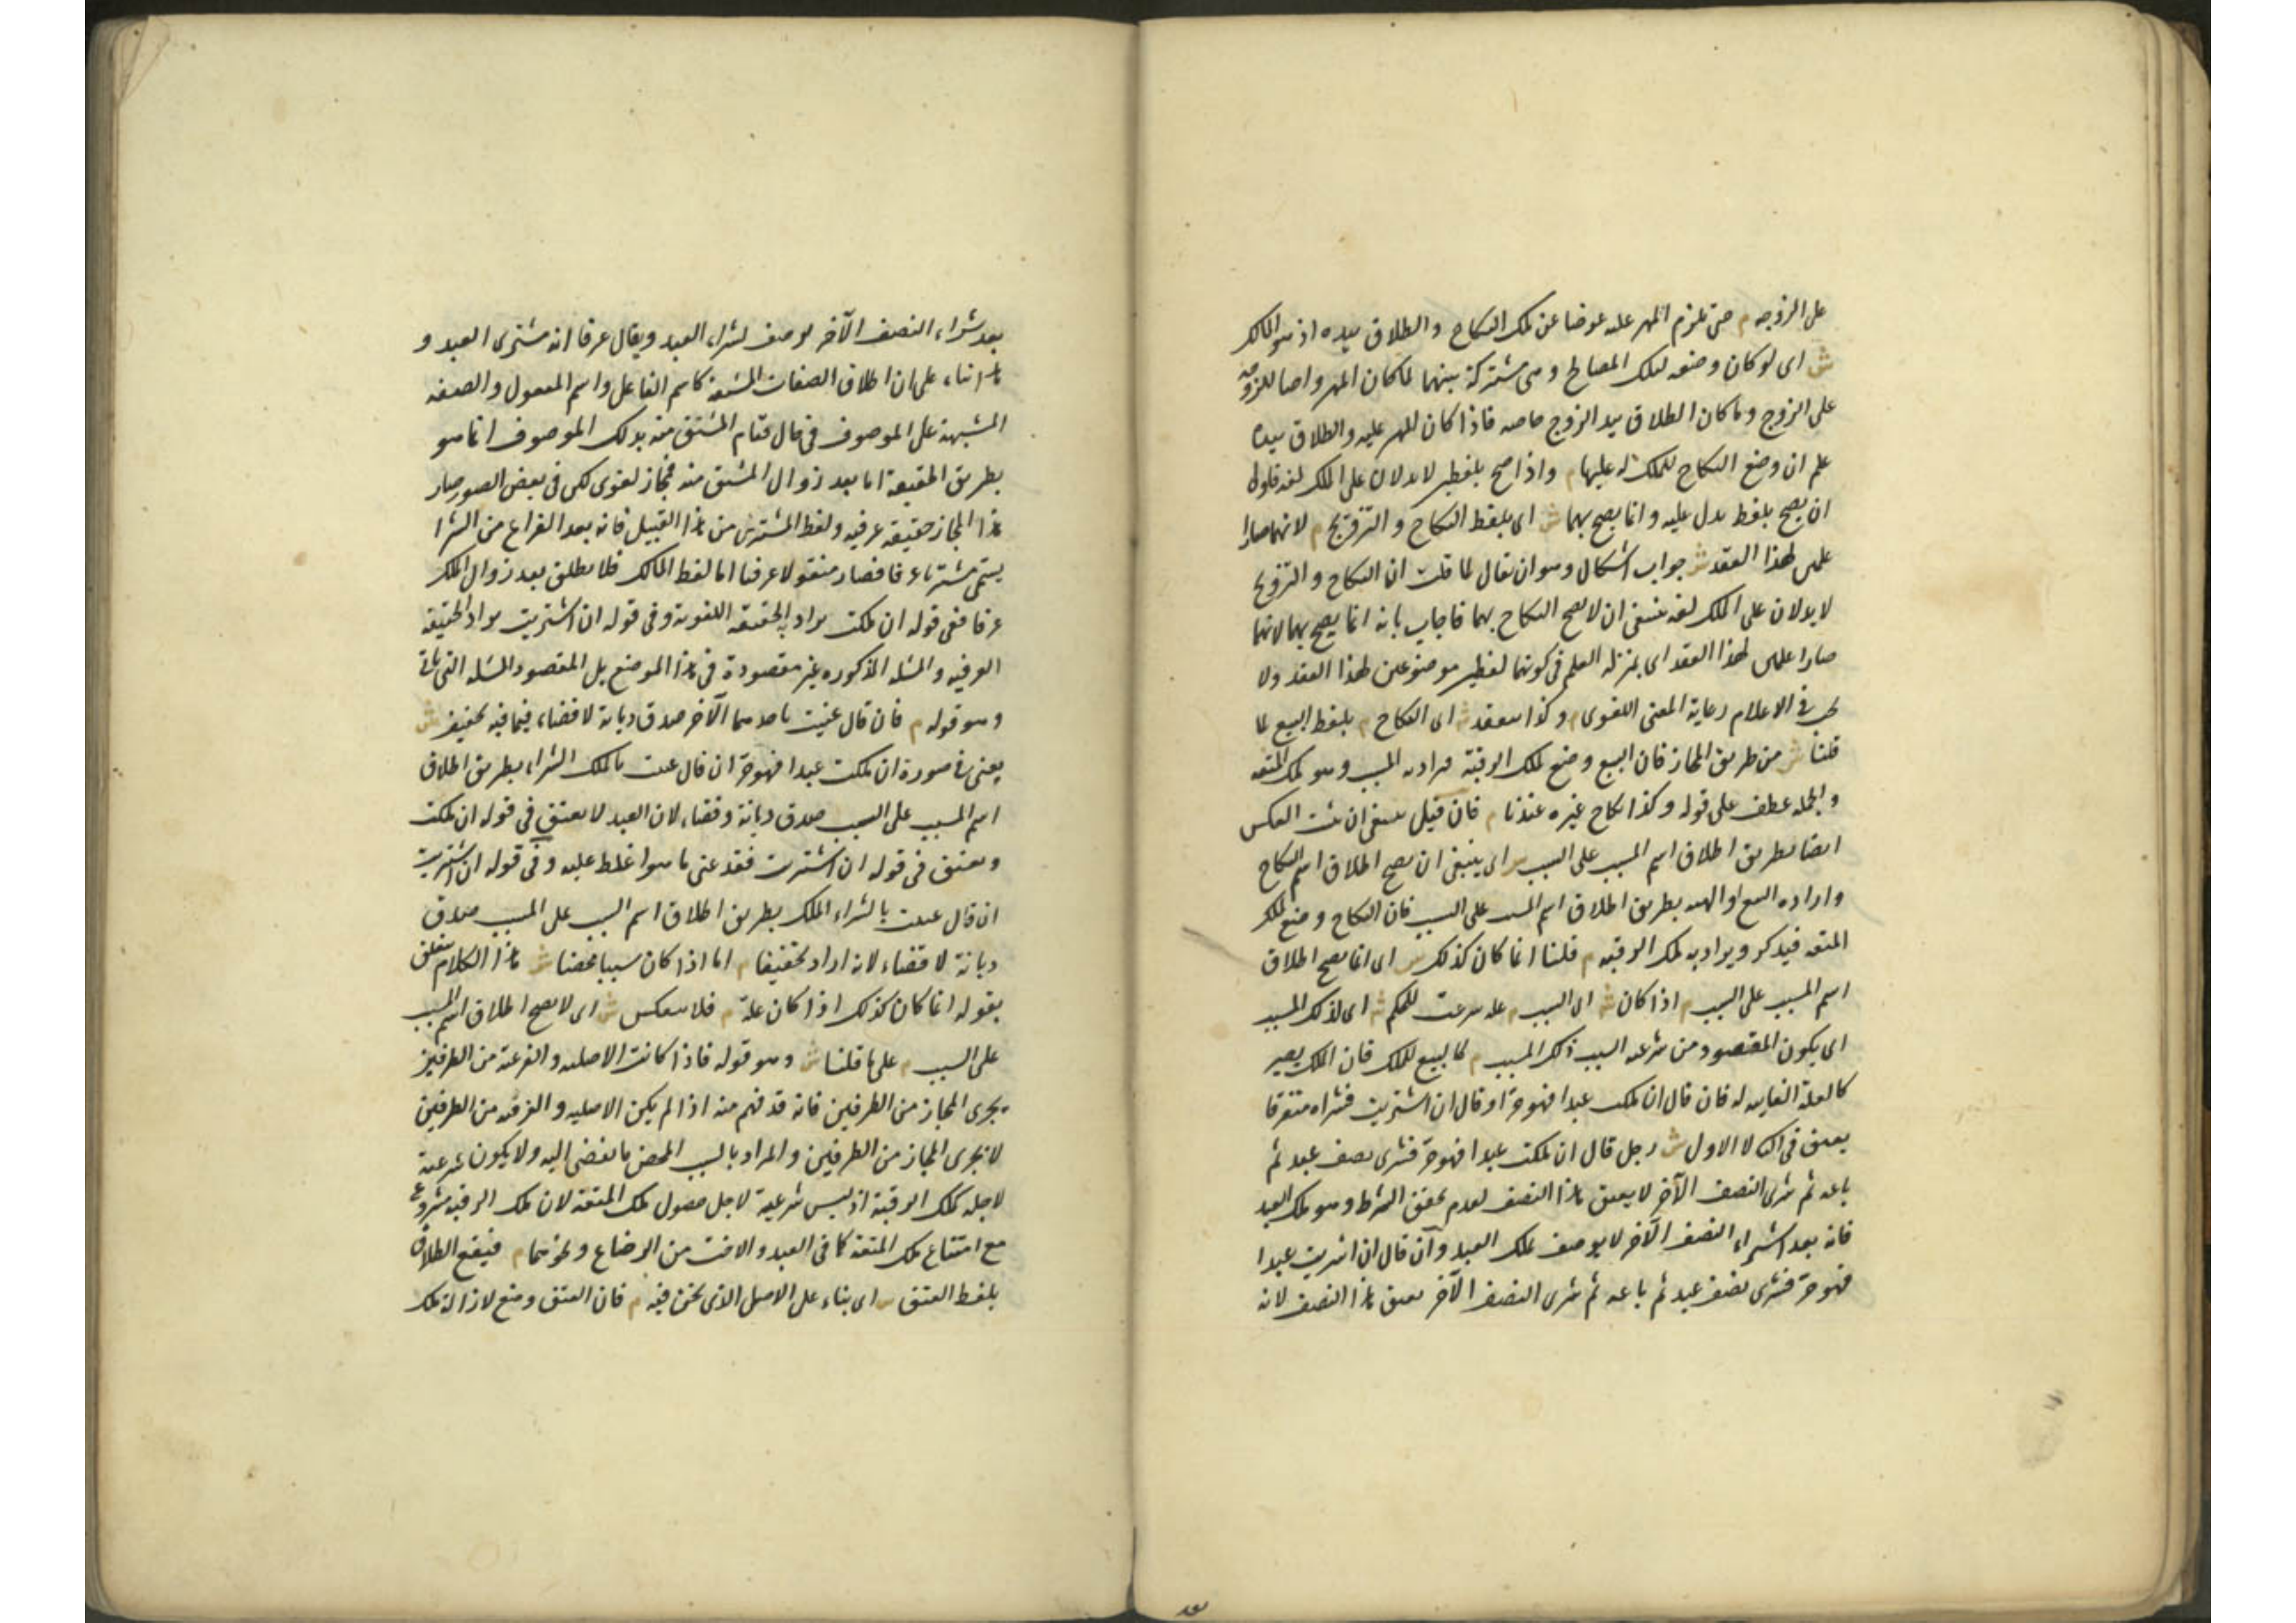 على الزوجه م حتى يلزم المهر عليه عوضا عن ملك النكاح والطلاق بيده اذ هو المالك
ش اى لو كان وضعه لتلك المصالح وهى مشتركة بينهما لما كان المهر واجبا للزوجه
على الزوج وما كان الطلاق بيد الزوج خاصه فاذا كان المهر عليه والطلاق بيده
علم ان وضع النكاح للملك له عليها م واذا صح بلفظين لا يدلان على الملك لغه فاولى
ان يصح بلفظ يدل عليه وانما يصح بهما ش اى بلفظ النكاح والتزويج م لانهما صارا
علمين لهذا العقد ش جواب اشكال وهو ان يقال لما قلت ان النكاح والتزويج
لا يدلان على الملك لغه ينبغى ان لا يصح النكاح بهما فاجاب بانه انما يصح بهما لانهما
صارا علمين لهذا العقد اى بمنزله العلم فى كونهما لفظين موضوعين لهذا العقد ولا
يجب فى الاعلام رعاية المعنى اللغوى م وكذا ينعقد ش اى النكاح م بلفظ البيع لما
قلنا ش من طريق المجاز فان البيع وضع لملك الرقبة فيراد به المسبب وهو ملك المتعه
والجمله عطف على قوله وكذا نكاح غيره عندنا م فان قيل ينبغى ان يثبت العكس
ايضا بطريق اطلاق اسم المسبب على السبب ش اى ينبغى ان يصح اطلاق اسم النكاح
واراده البيع او الهبه بطريق اطلاق اسم المسبب على السبب فان النكاح وضع لملك
المتعه فيذكر ويراد به ملك الرقبه م قلنا انما كان كذلك ش اى انما يصح اطلاق
اسم المسبب على السبب م اذا كان ش اى السبب م عله شرعت للحكم ش اى لذلك المسبب
اى يكون المقصود من شرعيه السبب ذلك المسبب م كالبيع للملك فان الملك يصير
كالعلة الغاييه له فان قال ان ملكت عبدا فهو حر او قال ان اشتريت فشراه متفرقا
يعتق فى الثانى لا الاول ش رجل قال ان ملكت عبدا فهو حر فشرى نصف عبد ثم
باعه ثم شرى النصف الآخر لا يعتق هذا النصف لعدم تحقق الشرط وهو ملك العبد
فانه بعد اشتراء النصف الآخر لا يوصف بملك العبد وان قال ان اشريت عبدا
فهو حر فشرى نصف عبد ثم باعه ثم شرى النصف الآخر يعتق هذا النصف لانه
بعد
بعد شراء النصف الآخر يوصف بشراء العبد ويقال عرفا انه مشترى العبد و
هذا بناء على ان اطلاق الصفات المشتقه كاسم الفاعل واسم المفعول والصفه
المشبهة على الموصوف فى حال قيام المشتق منه بذلك الموصوف انما هو
بطريق الحقيقة اما بعد زوال المشتق منه فمجاز لغوى لكن فى بعض الصور صار
هذا المجاز حقيقة عرفيه ولفظ المشترى من هذا القبيل فانه بعد الفراغ من الشرا
يسمى مشتريا عرفا فصار منقولا عرفيا اما لفظ المالك فلا يطلق بعد زوال الملك
عرفا ففى قوله ان ملكت يراد به الحقيقه اللغوية وفى قوله ان اشتريت يراد الحقيقه
العرفيه والمسئله المذكوره غير مقصودة فى هذا الموضع بل المقصود المسئله التى تاتى
وهو قوله م فان قال عنيت باحدهما الآخر صدق ديانة لا قضاء فيما فيه تخفيف ش
يعنى فى صورة ان ملكت عبدا فهو حر ان قال عنيت بالملك الشراء بطريق اطلاق
اسم المسبب على السبب صدق ديانة وقضاء لان العبد لا يعتق فى قوله ان ملكت
ويعتق فى قوله ان اشتريت فقد عنى ما هو اغلظ عليه وفى قوله ان اشتريت
ان قال عنيت بالشراء الملك بطريق اطلاق اسم السبب على المسبب صدق
ديانة لا قضاء لانه اراد تخفيفا م اما اذا كان سببا محضا ش هذا الكلام يتعلق
بقوله انما كان كذلك اذا كان علة م فلا ينعكس ش اى لا يصح اطلاق اسم المسبب
على السبب م على ما قلنا ش وهو قوله فاذا كانت الاصليه والفرعية من الطرفين
يجرى المجاز من الطرفين فانه قد فهم منه اذا لم يكن الاصليه والفرعيه من الطرفين
لا يجرى المجاز من الطرفين والمراد بالسبب المحض ما يفضى اليه ولا يكون شرعية
لاجله كملك الرقبة اذ ليس شرعية لاجل حصول ملك المتعة لان ملك الرقبه مشروع
مع امتناع ملك المتعة كما فى العبد والاخت من الرضاع ونحوهما م فيقع الطلاق
بلفظ العتق ش اى بناء على الاصل الذى نحن فيه م فان العتق وضع لازالة ملك